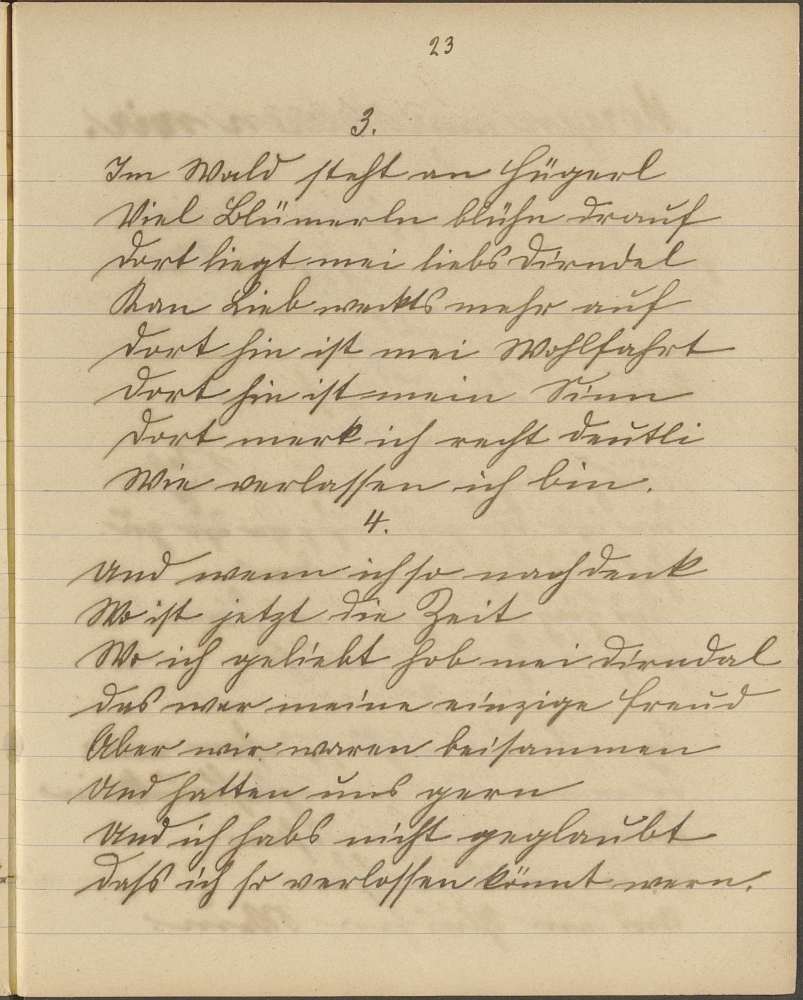 23
3.
Im Wald steht an Hügerl
Viel Blümerln blühn drauf
Dort liegt mei liebs Dirndel
Kan Lieb weckts mehr auf
Dort hin ist mei Wohlfahrt
Dort hin ist mein Sinn
Dort merk ich recht deutli
Wie verlassen ich bin.
4.
Und wenn ich so nach denk
Wo ist jetzt die Zeit
Wo ich geliebt hob mei Dirndal
Das war meine einzige Freud
Aber wir waren beisammen
Und hatten uns gern
Und ich habs nicht geglaubt
Dass ich so verlossen könnt wern.